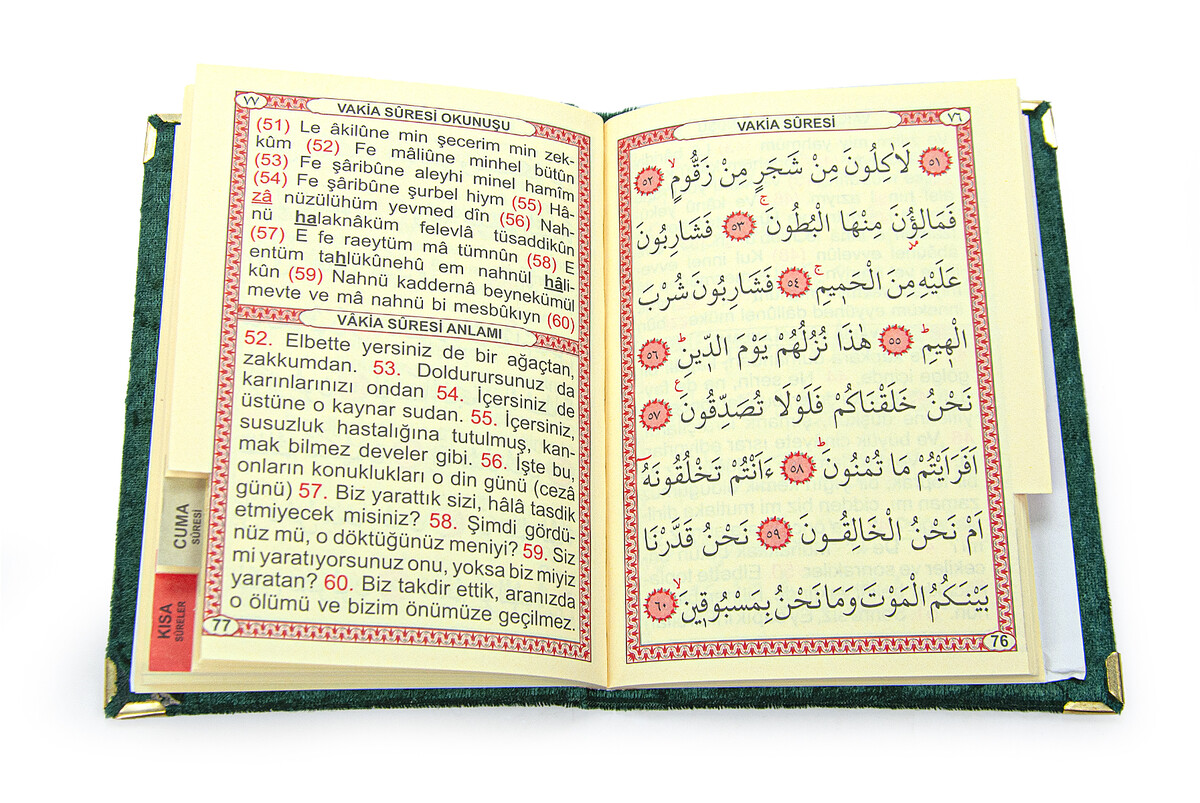 ٧٧
VAKİA SÛRESİ OKUNUŞU
(51) Le âkilûne min şecerim min zek-
kûm (52) Fe mâliûne minhel bütûn
(53) Fe şâribûne aleyhi minel hamîm
(54) Fe şâribûne şurbel hiym (55) Hâ-
zâ nüzülühüm yevmed dîn (56) Nah-
nü halaknâküm felevlâ tüsaddikûn
(57) E fe raeytüm mâ tümnûn (58) E
entüm tahlükûnehû em nahnül hâli-
kûn (59) Nahnü kaddernâ beynekümül
mevte ve mâ nahnü bi mesbûkıyn (60)
VÂKIA SÛRESİ ANLAMI
52. Elbette yersiniz de bir ağaçtan,
zakkumdan. 53. Doldurursunuz da
karınlarınızı ondan 54. İçersiniz de
üstüne o kaynar sudan. 55. İçersiniz,
susuzluk hastalığına tutulmuş, kan-
mak bilmez develer gibi. 56. İşte bu,
onların konuklukları o din günü (cezâ
günü) 57. Biz yarattık sizi, hâlâ tasdik
etmiyecek misiniz? 58. Şimdi gördü-
nüz mü, o döktüğünüz meniyi? 59. Siz
mi yaratıyorsunuz onu, yoksa biz miyiz
yaratan? 60. Biz takdir ettik, aranızda
o ölümü ve bizim önümüze geçilmez.
77
CUMA
SÛRESİ
KISA
SÛRELER
VAKİA SÛRESİ
٧٦
٥١ لَاٰكِلُونَ مِنْ شَجَرٍ مِنْ زَقُّومٍۙ ٥٢
فَمَالِؤُ۫نَ مِنْهَا الْبُطُونَۚ ٥٣ فَشَارِبُونَ
عَلَيْهِ مِنَ الْحَم۪يمِۚ ٥٤ فَشَارِبُونَ شُرْبَ
الْه۪يمِۜ ٥٥ هٰذَا نُزُلُهُمْ يَوْمَ الدّ۪ينِۜ ٥٦
نَحْنُ خَلَقْنَاكُمْ فَلَوْلَا تُصَدِّقُونَ ٥٧
اَفَرَاَيْتُمْ مَا تُمْنُونَۜ ٥٨ ءَاَنْتُمْ تَخْلُقُونَهُٓ
اَمْ نَحْنُ الْخَالِقُونَ ٥٩ نَحْنُ قَدَّرْنَا
بَيْنَكُمُ الْمَوْتَ وَمَا نَحْنُ بِمَسْبُوق۪ينَۙ ٦٠
76